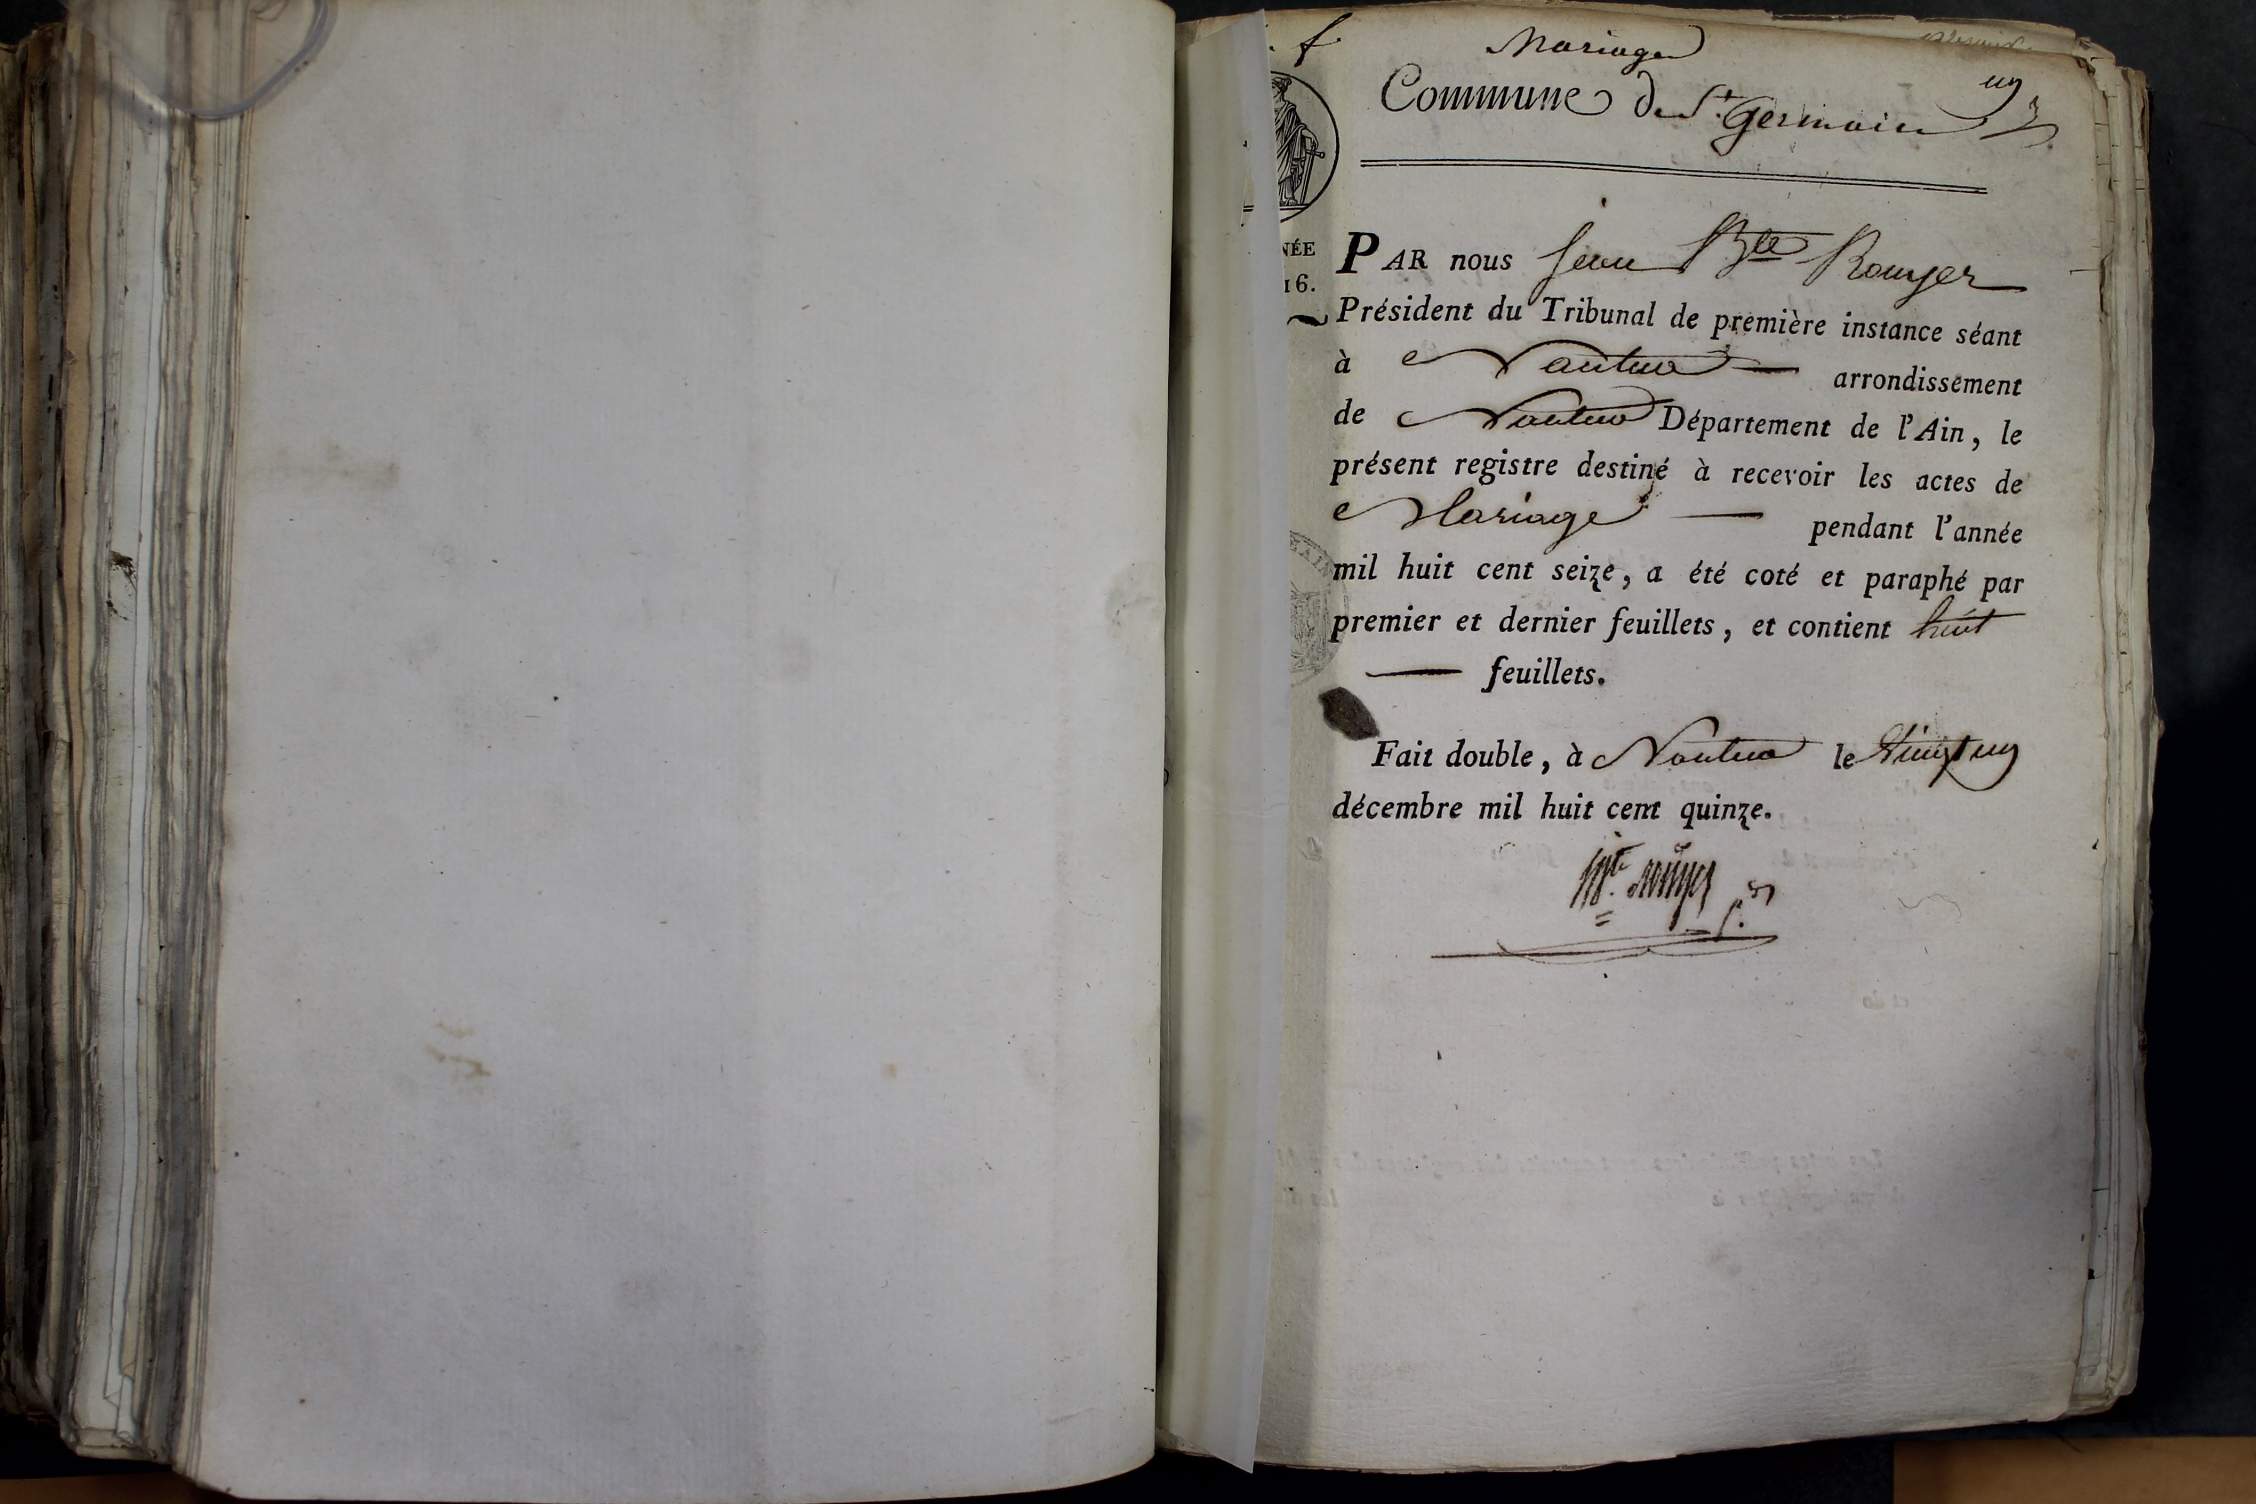 Mariage
un
Commune de St. Germain
NÉE
16.
PAR nous Jean Bte Rouyer
Président du Tribunal de première instance séant
à Nantua — arrondissement
de Nantua Département de l'Ain, le
présent registre destiné à recevoir les actes de
Mariage — pendant l'année
mil huit cent seize, a été coté et paraphé par
premier et dernier feuillets, et contient huit
— feuillets.
Fait double, à Nantua le vingt un
décembre mil huit cent quinze.
Bte. rouyer